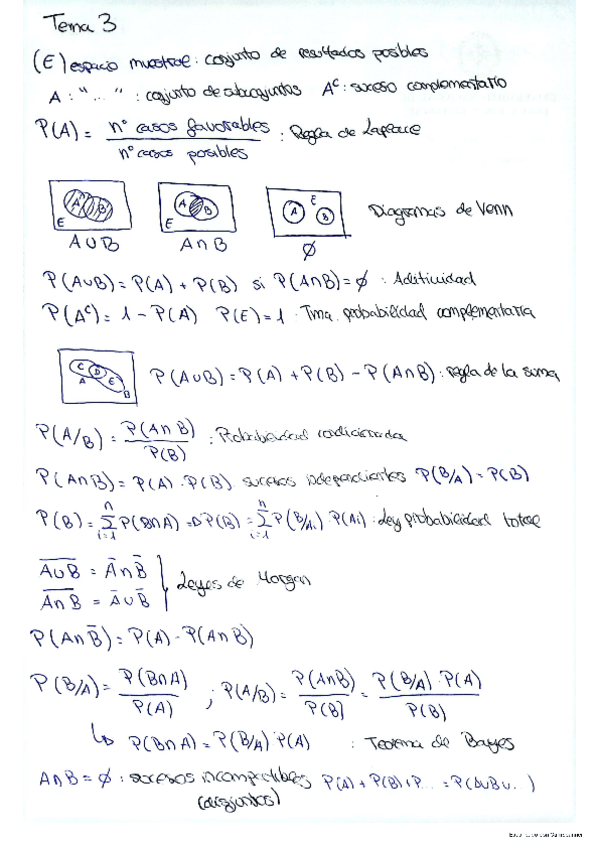 Tema 3
(E) espacio muestral: conjunto de resultados posibles
A: "..." : conjunto de subconjuntos Aᶜ: suceso complementario
P(A) = nº casos favorables / nº casos posibles : Regla de Laplace
A B E A B E A B E Diagramas de Venn
A∪B A∩B ∅
P(A∪B) = P(A) + P(B) si P(A∩B) = ∅ : Aditividad
P(Aᶜ) = 1 - P(A) P(E) = 1 : Tma. probabilidad complementaria
C D E A B P(A∪B) = P(A) + P(B) - P(A∩B) : regla de la suma
P(A/B) = P(A∩B) / P(B) : Probabilidad condicionada
P(A∩B) = P(A) · P(B) sucesos independientes P(B/A) = P(B)
P(B) = Σⁿᵢ₌₁ P(B∩A) ⇒ P(B) = Σⁿᵢ₌₁ P(B/Aᵢ) · P(Aᵢ) : Ley probabilidad total
A̅∪̅B̅ = A̅ ∩ B̅
A̅∩̅B̅ = A̅ ∪ B̅ } Leyes de Morgan
P(A∩B̅) = P(A) - P(A∩B)
P(B/A) = P(B∩A) / P(A) ; P(A/B) = P(A∩B) / P(B) = P(B/A) · P(A) / P(B)
↳ P(B∩A) = P(B/A) · P(A) : Teorema de Bayes
A∩B = ∅ : sucesos incompatibles P(A) + P(B) + P... = P(A∪B∪...)
(disjuntos)